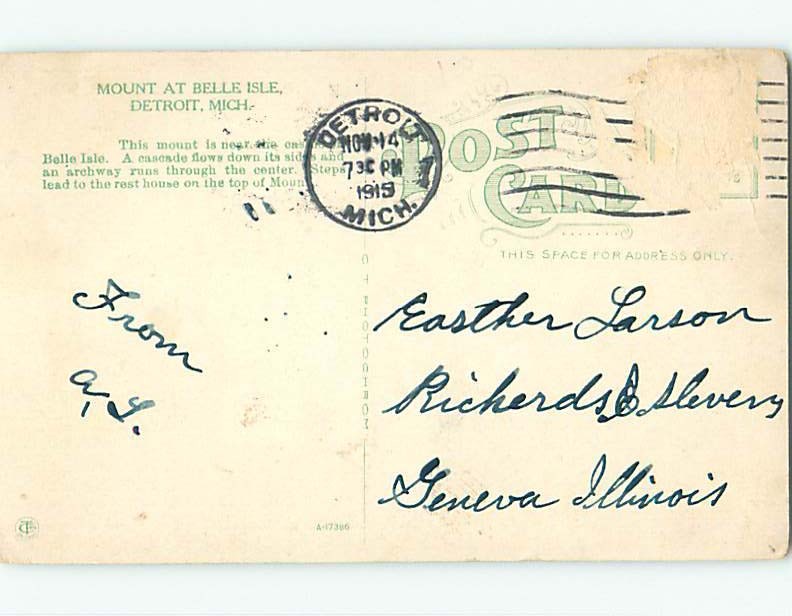 MOUNT AT BELLE ISLE,
DETROIT, MICH.
This mount is near the
Belle Isle. A cascade flows down its sides and
an archway runs through the center. Steps
lead to the rest house on the top of Moun
DETROIT
NOV 14
7 30 PM
1915
MICH.
1
POST
CARD
THIS SPACE FOR ADDRESS ONLY.
From
A. L.
Easther Larson
Richerds & Slevery
Geneva Illinois
A-17386